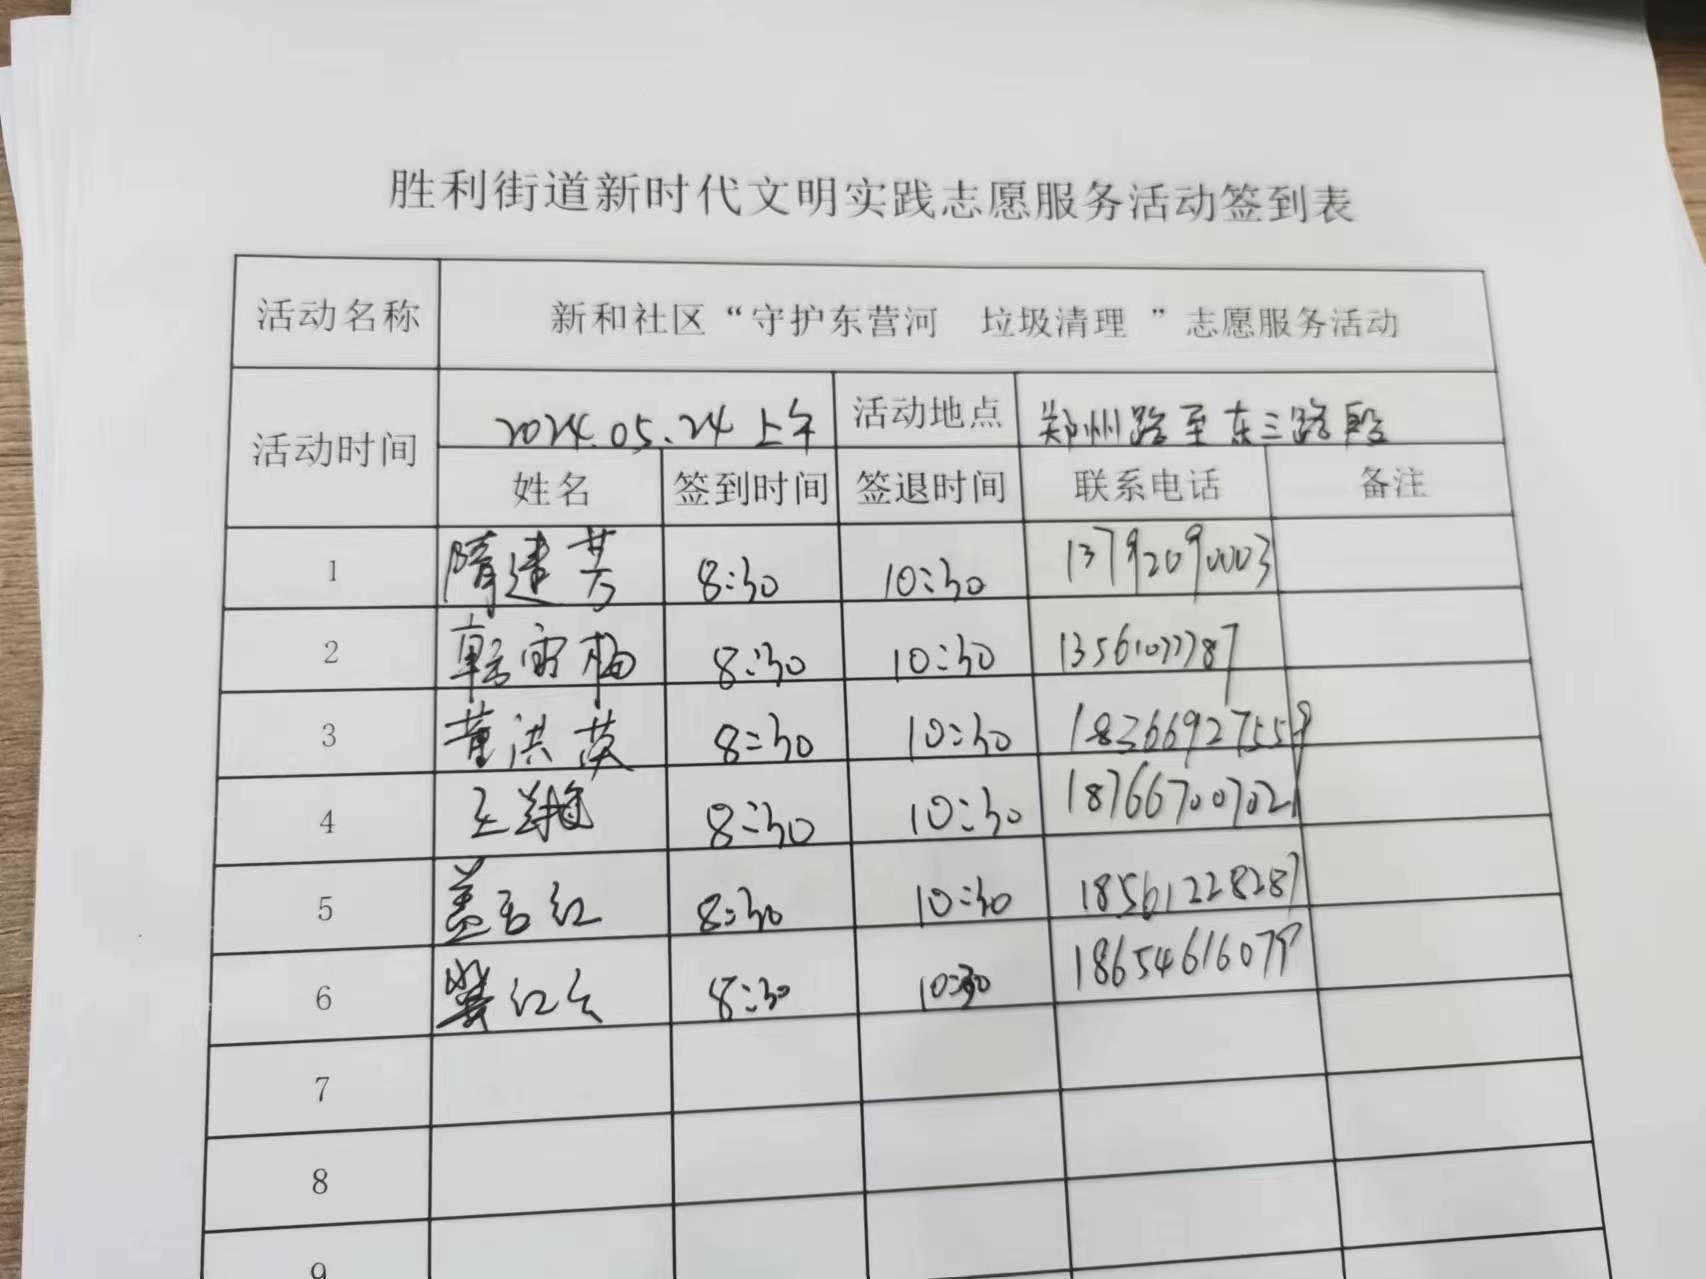 胜利街道新时代文明实践志愿服务活动签到表
活动名称 新和社区“守护东营河 垃圾清理 ”志愿服务活动
活动时间 2024.05.24上午 活动地点 郑州路至东三路段
姓名 签到时间 签退时间 联系电话 备注
1 隋建芳 8:30 10:30 13792090003
2 韩雷梅 8:30 10:30 13561077787
3 董洪英 8:30 10:30 18366927559
4 王翔 8:30 10:30 18766700702
5 盖 红 8:30 10:30 18561228287
6 红 8:30 10:30 18654616079
7
8
9